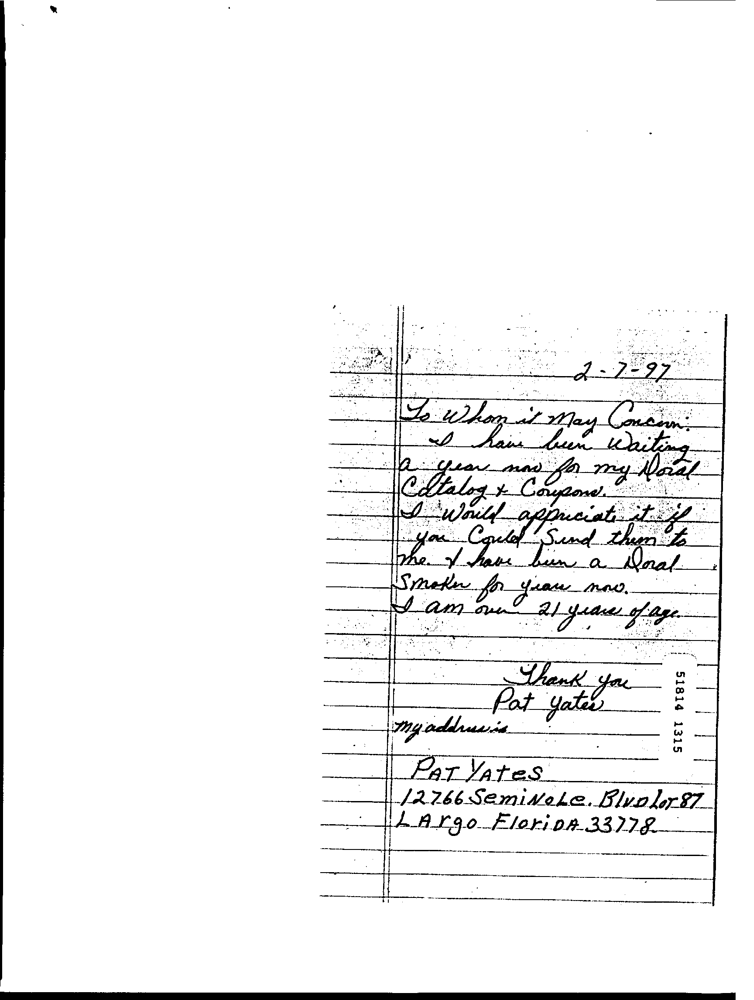 2-7-97
To Whom it May Concern:
I have been Waiting
a year now for my Doral
Catalog & Coupons.
I Would appriciate it if
you Could Send them to
me. I have been a Doral
Smoker for years now.
I am over 21 years of age.
Thank you
Pat Yates
my address is
PAT YAtes
12766 SemiNoLe. BlvD Lot 87
LArgo FloriDA 33778
51814 1315